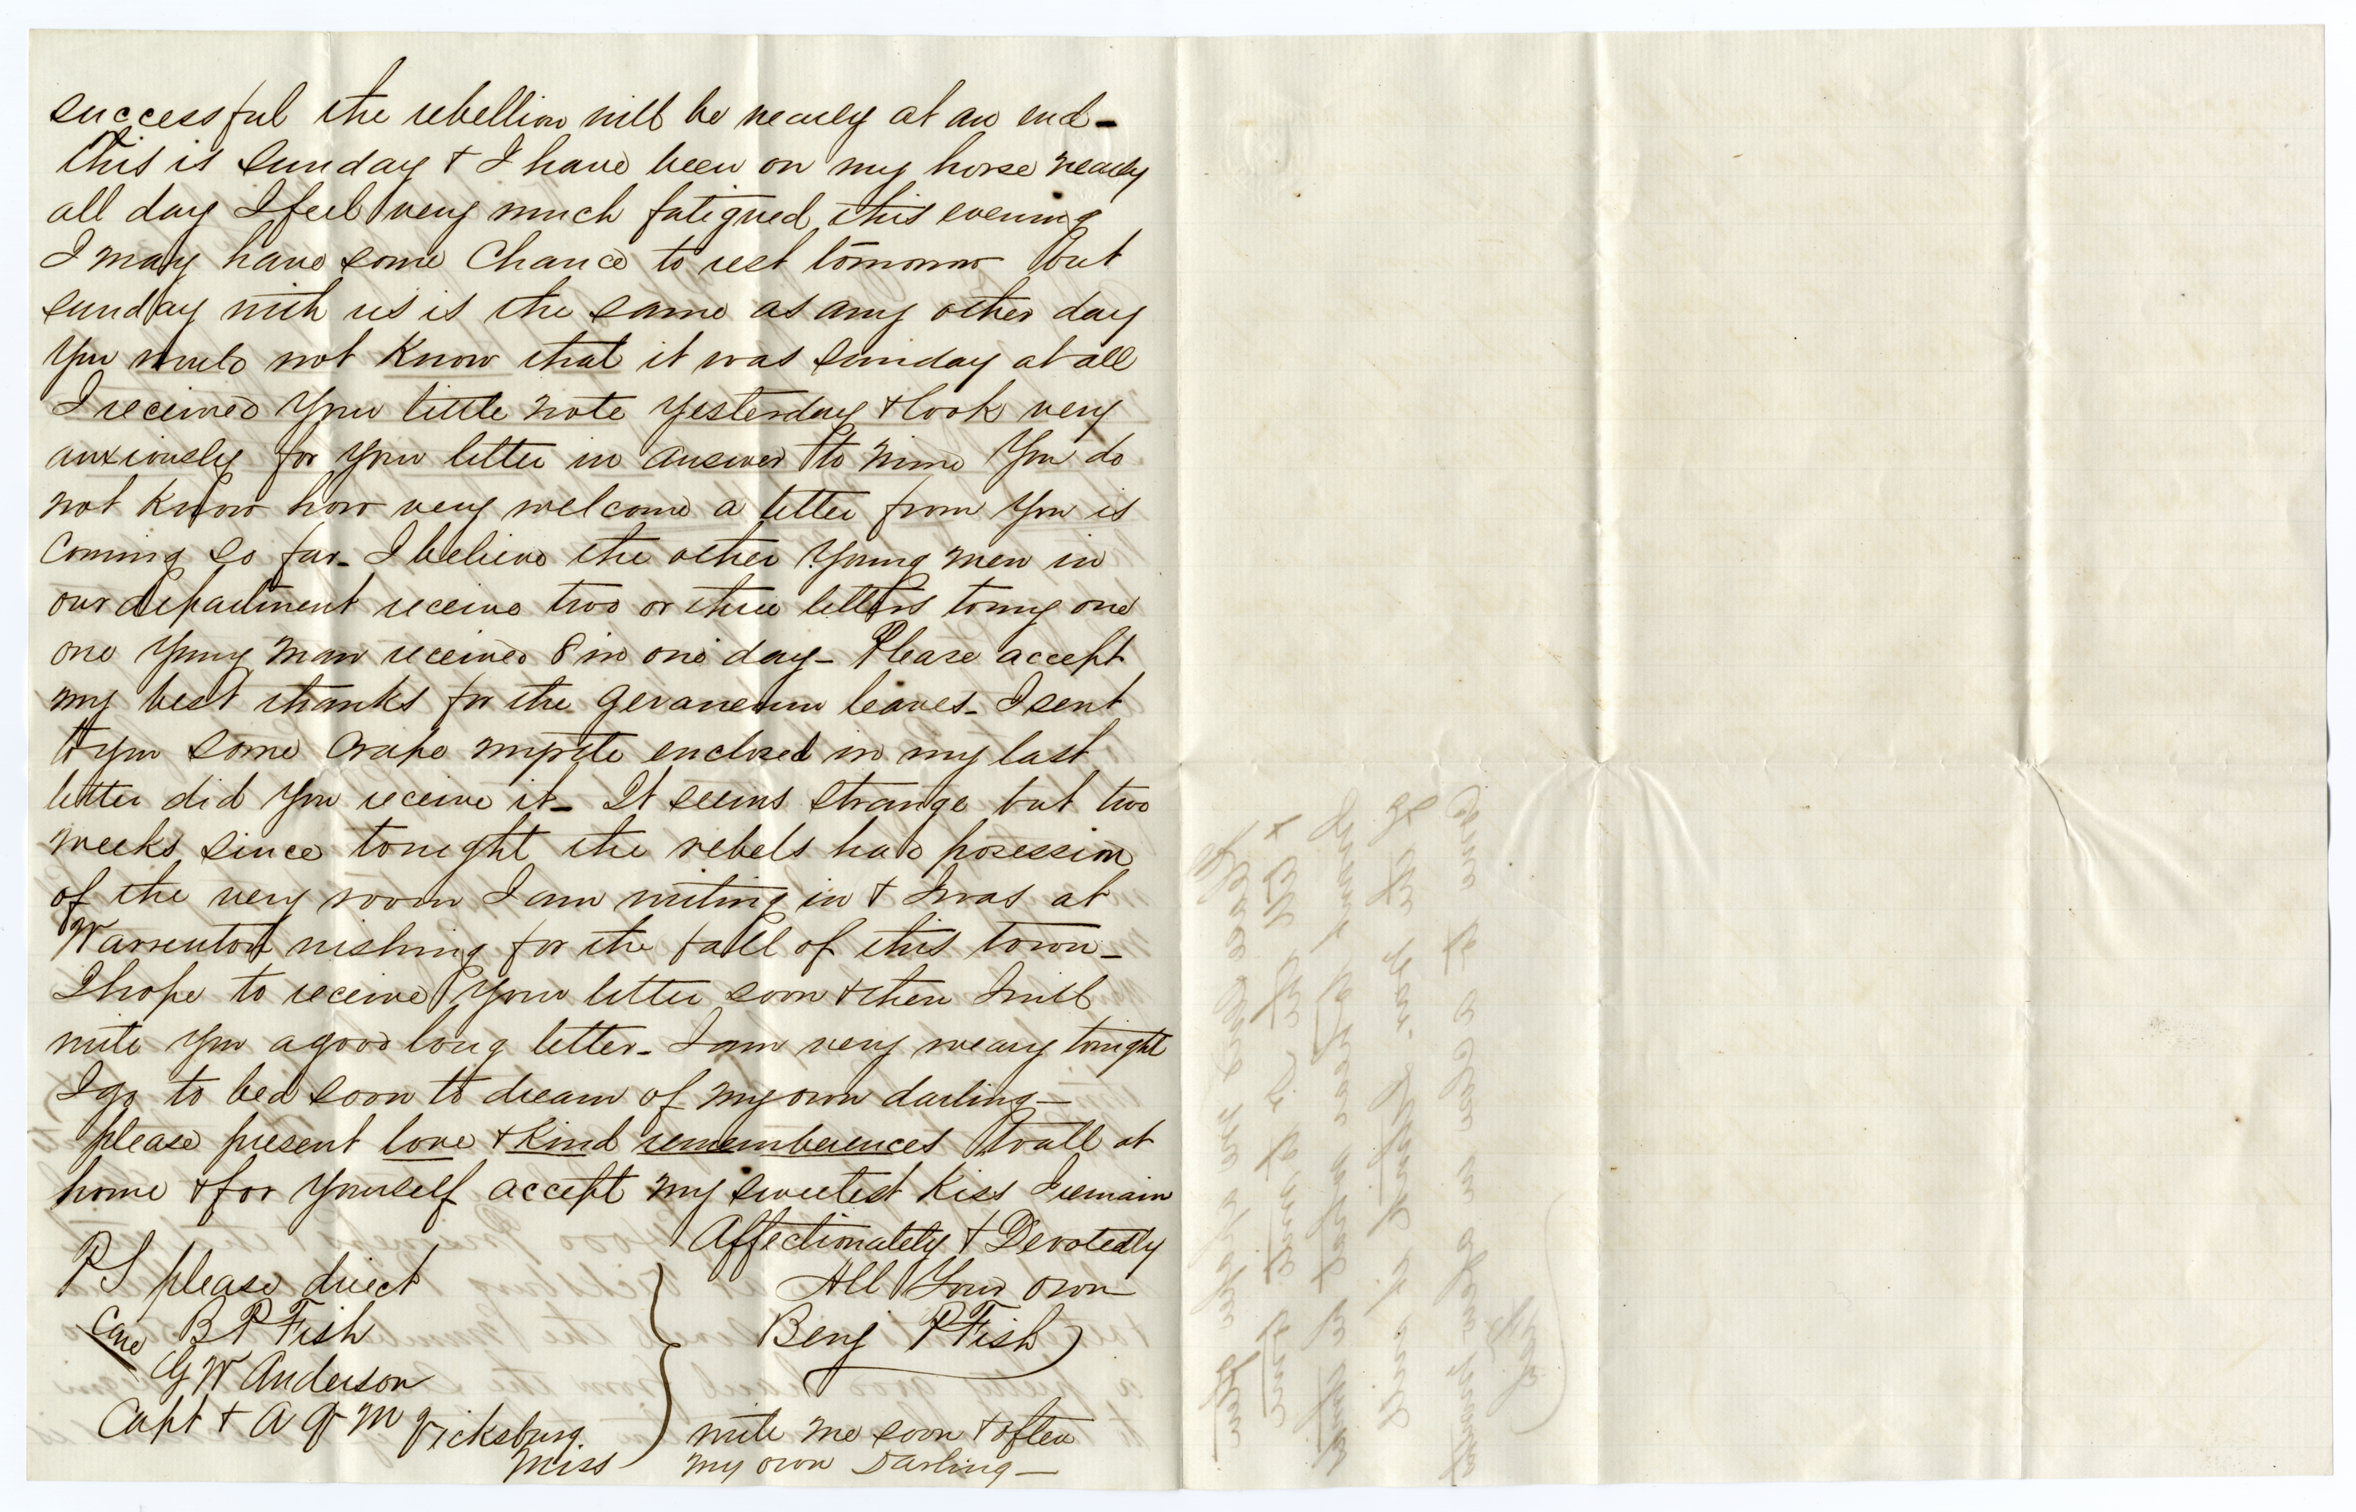 successful the rebellion will be nearly at an end–
this is sunday & I have been on my horse nearly
all day I feel very much fatigued this evening
I may have some chance to rest tomorrow but
sunday with us is the same as any other day
You would not know that it was sunday at all
I received Your little note yesterday & look very
anxiously for Your letter in answer to mine You do
not know how very welcome a letter from You is
coming so far– I believe the other Young men in
our department receive two or three letters to my one
one Young man received 8 in one day– Please accept
my best thanks for the geraneium leaves– I sent
to you some Crape myrtle enclosed in my last
letter did You receive it– It seems strange but two
weeks since tonight the rebels had posession
of the very room I am writing in & I was at
Warrenton wishing for the fall of this town–
I hope to receive Your letter soon & then I will
write You a good long letter– I am very weary tonight
I go to bed soon to dream of my own darling–
please present love & kind rememberences to all at
home & for Yourself accept my sweetest kiss I remain
Affectionately & Devotedly
All Your own
Benj P Fish
P S please direct
B P Fish
Care G W Anderson
Capt & A Q M Vicksburg
Miss
write me soon & often
my own Darling–